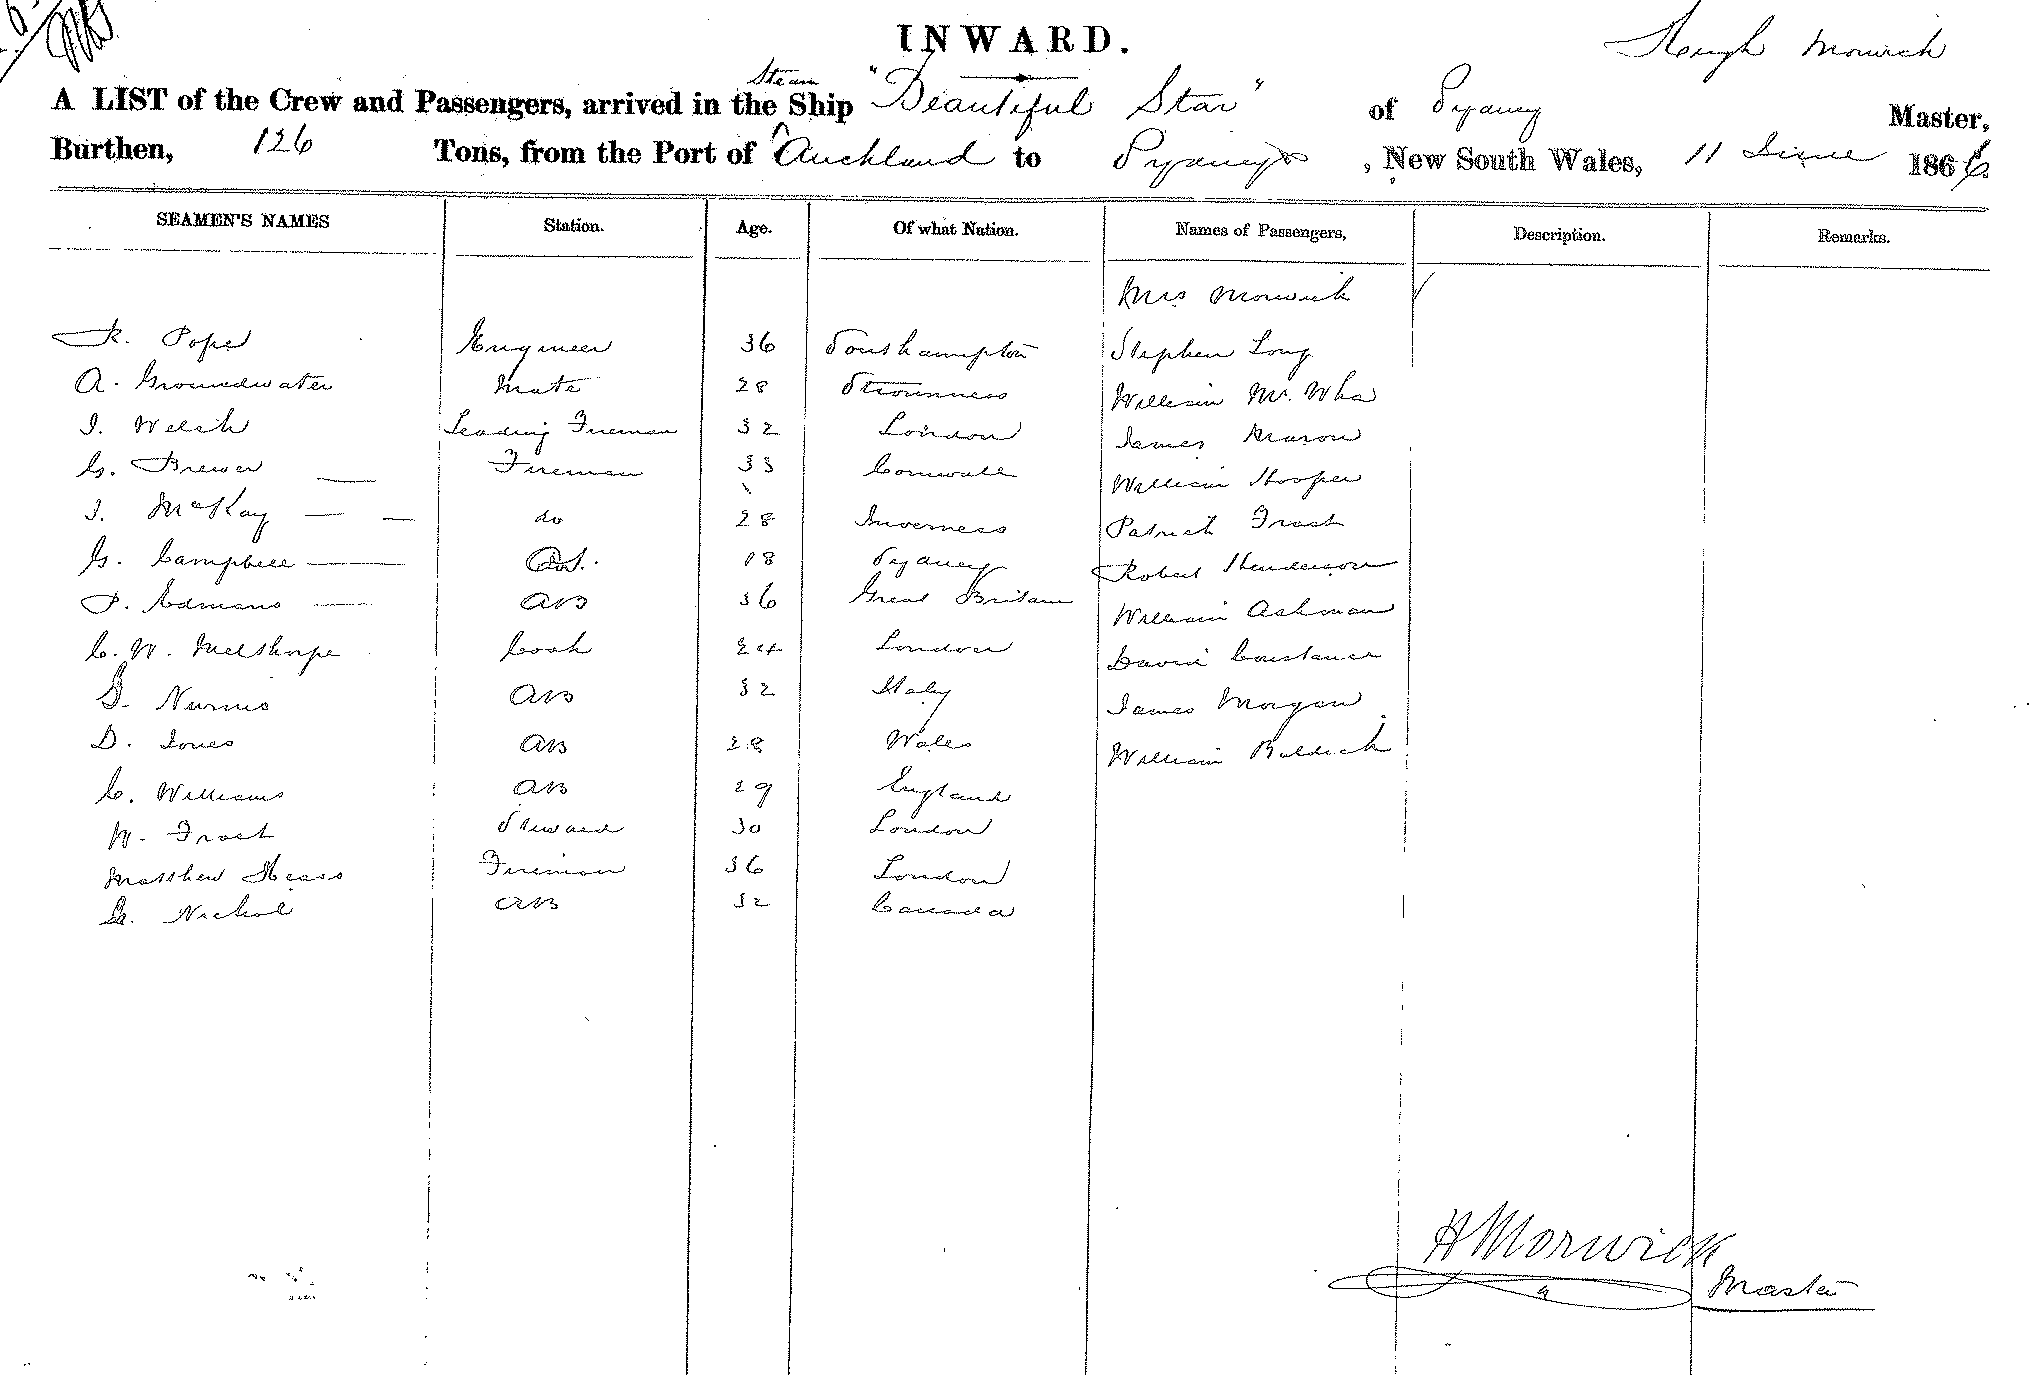 INWARD.
Hugh Morwick
A LIST of the Crew and Passengers, arrived in the Steam Ship "Beautiful Star" of Sydney Master,
Burthen, 126 Tons, from the Port of Auckland to Sydney, New South Wales, 11 June 1866
SEAMEN'S NAMES Station. Age. Of what Nation. Names of Passengers, Description. Remarks.
Mrs Morwick
R. Pope Engineer 36 Southampton Stephen Long
A. Groundwater Mate 28 Stromness William
J. Welsh Leading Fireman 32 London James Mason
G. Brewer Fireman 33 Cornwall William Hooper
J. McKay do 28 Inverness Patrick Frost
G. Campbell 18 Sydney Robert Henderson
P. AB 36 Great Britain William Ashman
C. W. Melthorpe Cook 24 London David Constance
AB 32 Italy James Morgan
D. Jones AB 28 Wales William Baldick
C. Williams AB 29 England
W. Frost Steward 30 London
Matthew Fireman 36 London
G. Nichol AB 32 Canada
H Morwick
Master